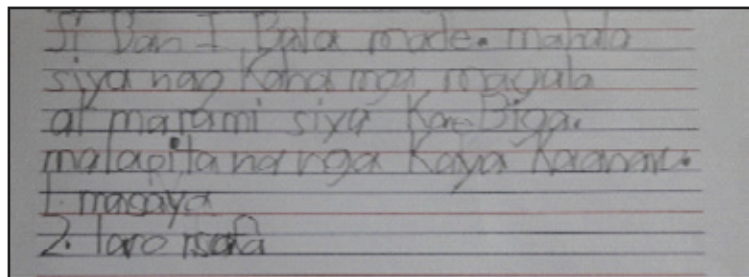 Si Dan I Bala made. mahala
siya nag Kaha mga magula
at marami siya Kae Biga.
malapita na nga Kaya
1. masaya
2. laro